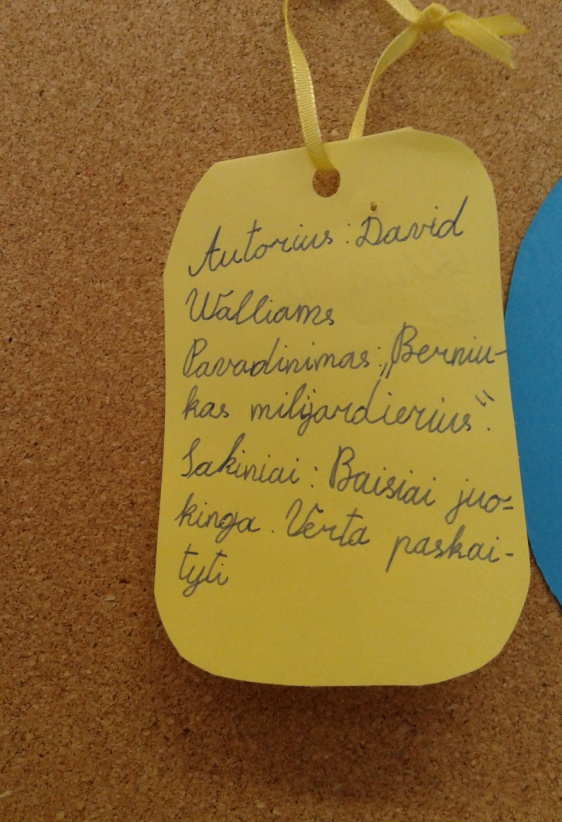 Autorius: David
Walliams
Pavadinimas: „Berniu-
kas milijardierius“.
Sakiniai: Baisiai juo-
kinga. Verta paskai-
tyti